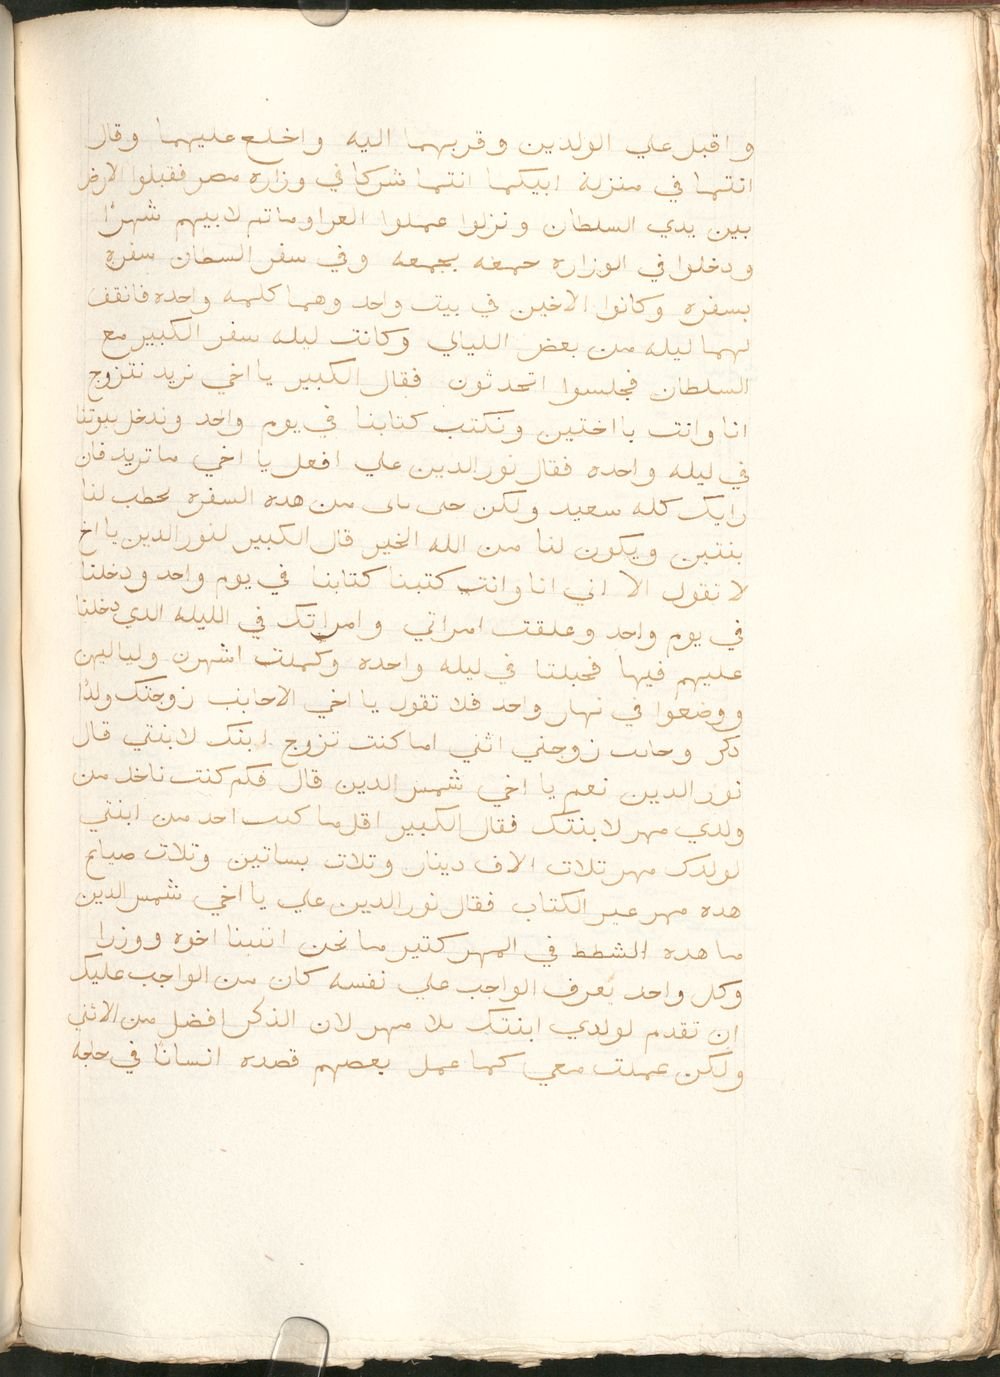 واقبل علي الولدين وقربهما اليه واخلع عليهما وقال
انتما في منزلة ابيكما انتما شركا في وزاره مصر فقبلوا الارض
بين يدي السلطان ونزلوا عملوا العزا وماتم لابيهم شهرًا
ودخلوا في الوزاره جمعه بجمعه وفي سفر السطان سفره
بسفره وكانوا الاخين في بيت واحد وهما كلمه واحده فاتفق
لهما ليله من بعض الليالي وكانت ليله سفر الكبير مع
السلطان فجلسوا اتحدثون فقال الكبير يا اخي نريد نتزوج
انا وانت باختين ونكتب كتابنا في يوم واحد وندخل بيوتنا
في ليله واحده فقال نور الدين علي افعل يا اخي ما تريد فان
رايك كله سعيد ولكن حى ىاى من هده السفره نخطب لنا
بنتين ويكون لنا من الله الخير قال الكبير لنور الدين يا اخ
لا تقول الا اني انا وانت كتبنا كتابنا في يوم واحد ودخلنا
في يوم واحد وعلقت امراتي وامراتك في الليله الدي دخلنا
عليهم فيها فحبلتا في ليله واحده وكملت اشهرن ولياليهن
ووضعوا في نهار واحد فلا تقول يا اخي الا جابت زوجتك ولدًا
دكر وجاىت زوجتي اثني اما كنت تزوج ابنك لابنتي قال
نور الدين نعم يا اخي شمس الدين قال فكم كنت تاخد من
ولدي مهر لابنتك فقال الكبير اقل ما كىت اخد من ابنتي
لولدك مهر تلات الاف دينار وتلات بساتين وتلات ضياع
هده مهر غير الكتاب فقال نور الدين علي يا اخي شمس الدين
ما هده الشطط في المهر كتير ما نحن اتنينا اخوه ووزرا
وكل واحد يعرف الواجب علي نفسه كان من الواجب عليك
ان تقدم لولدي ابنتك بلا مهر لان الذكر افضل من الاثني
ولكن عملت معي كما عمل بعضهم قصده انسانًا في حاجه